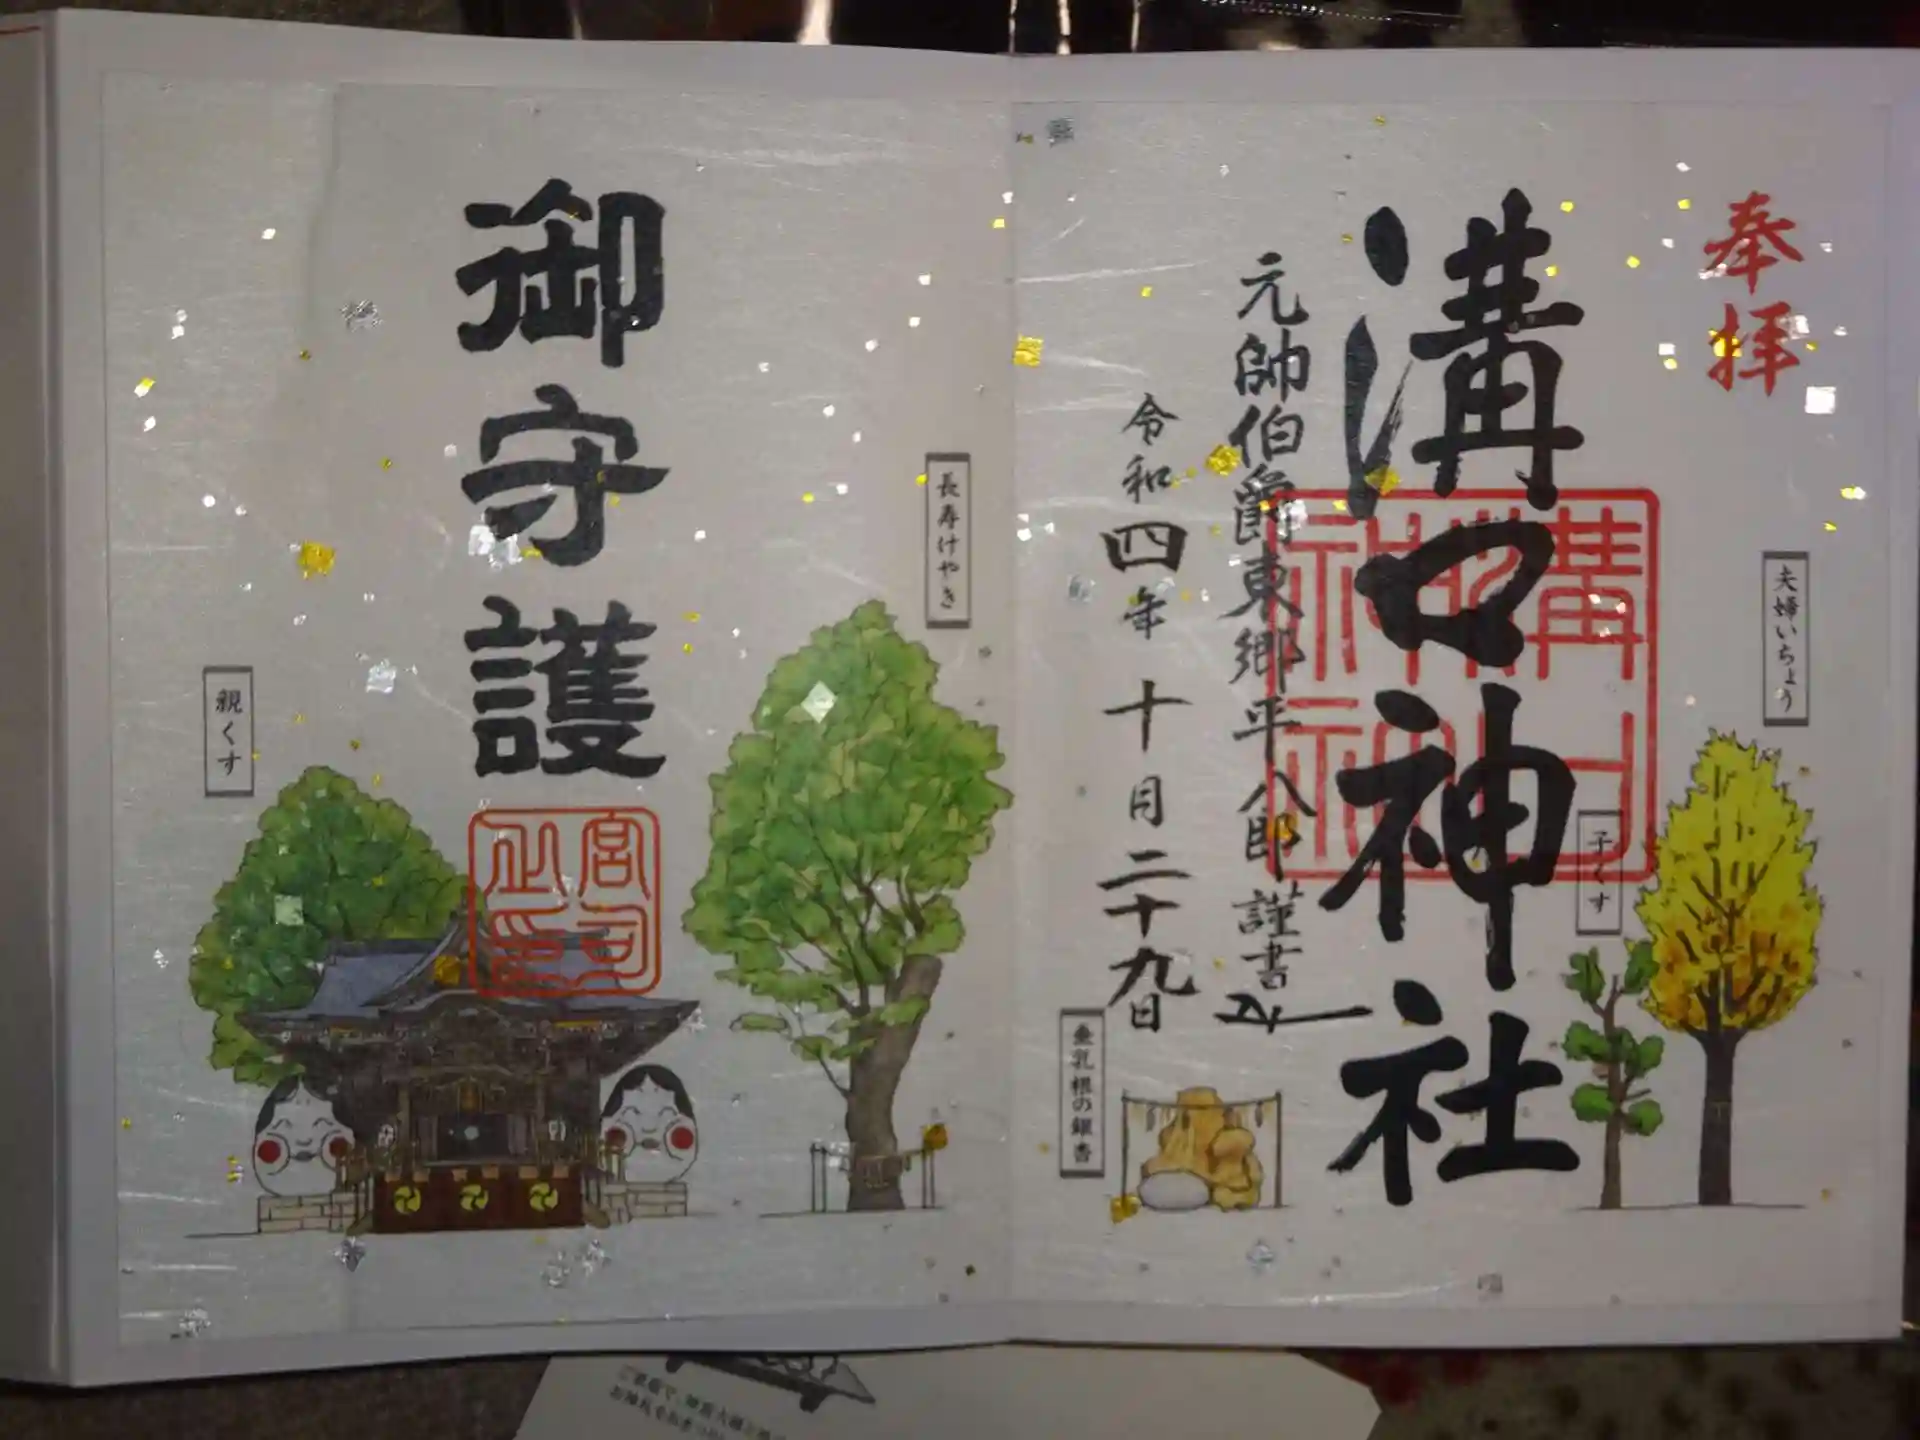 奉拝
溝口神社
元帥伯爵東郷平八郎謹書
令和四年十月二十九日
夫婦いちょう
子くす
垂乳根の銀杏
溝口
神社
御守護
長寿けやき
親くす
宮司
之印